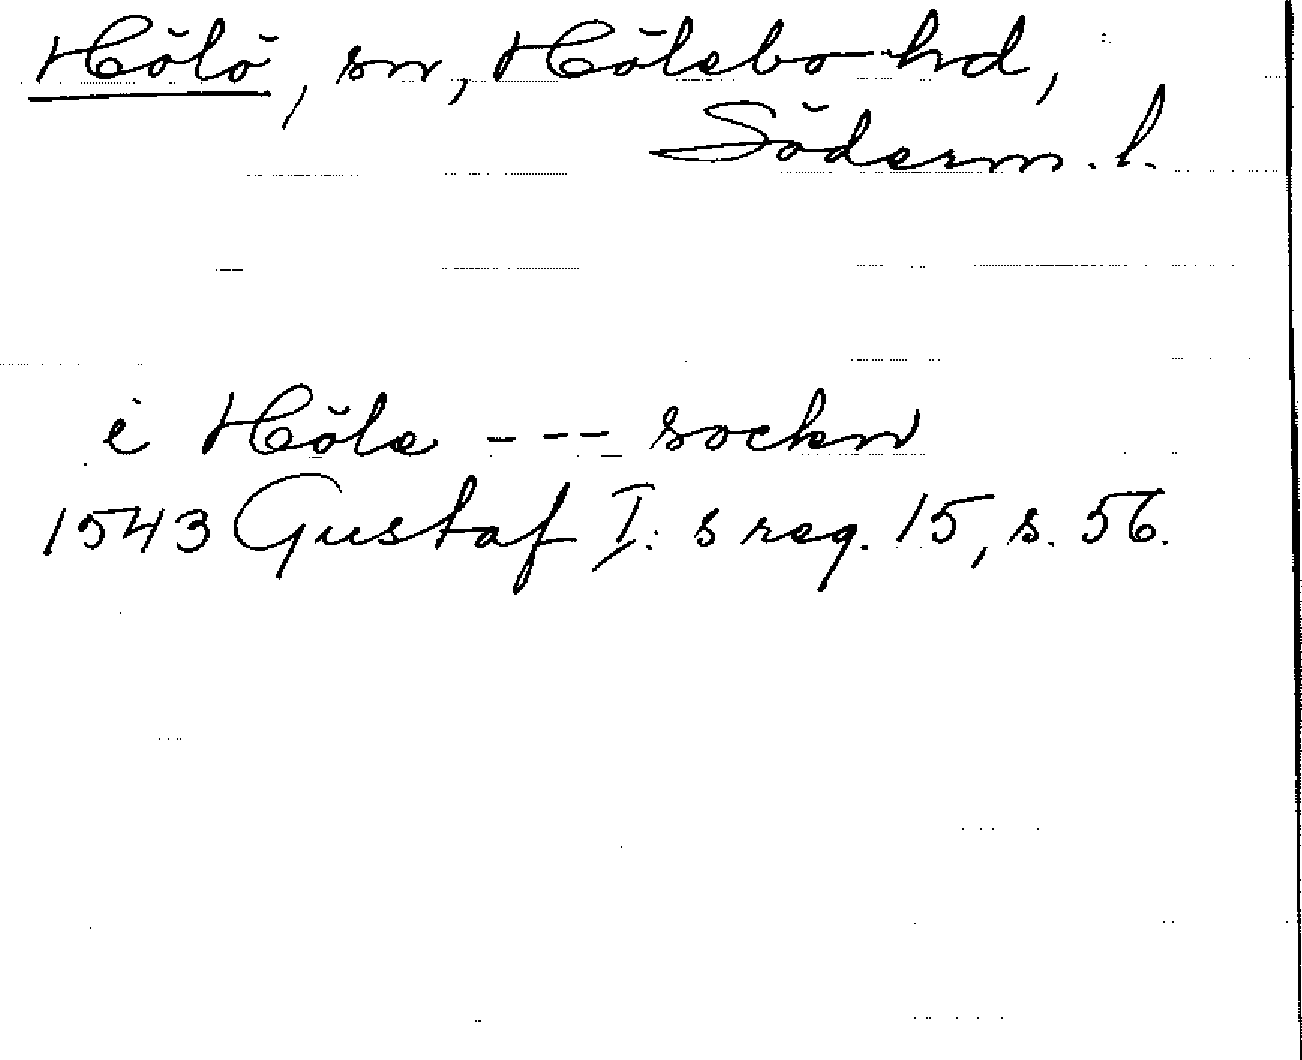 Hölö, sn, Hölebo hd,
Söderm. l.
i Höle --- sockn
1543 Gustaf I:s reg. 15, s. 56.